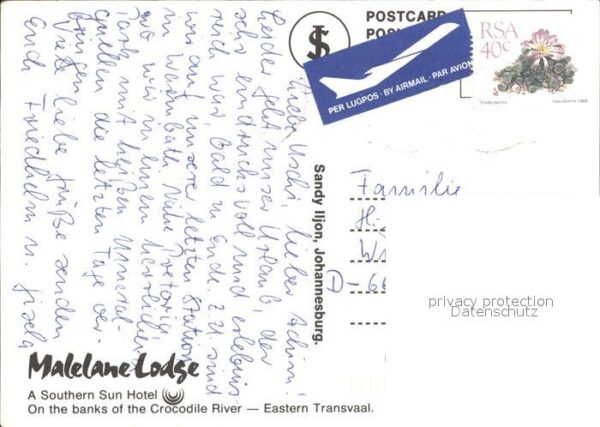 POSTCARD
PER LUGPOS · BY AIRMAIL · PAR AVION
RSA
40c
Liebe Uschi, lieber Achim!
Leider geht unser Urlaub, der
sehr eindrucksvoll und erlebnis-
reich war bald zu Ende. Z. Zt. sind
wir auf unserer letzten Station
in Warmbath, Nähe Pretoria,
wo wir in einem herrlichen
Park mit heißen Mineral-
quellen die letzten Tage ver-
bringen.
Viele liebe Grüße senden
Euch Friedhelm u. Gisela
Sandy Iljon, Johannesburg.
Familie
D-66
privacy protection
Datenschutz
Malelane Lodge
A Southern Sun Hotel
On the banks of the Crocodile River — Eastern Transvaal.